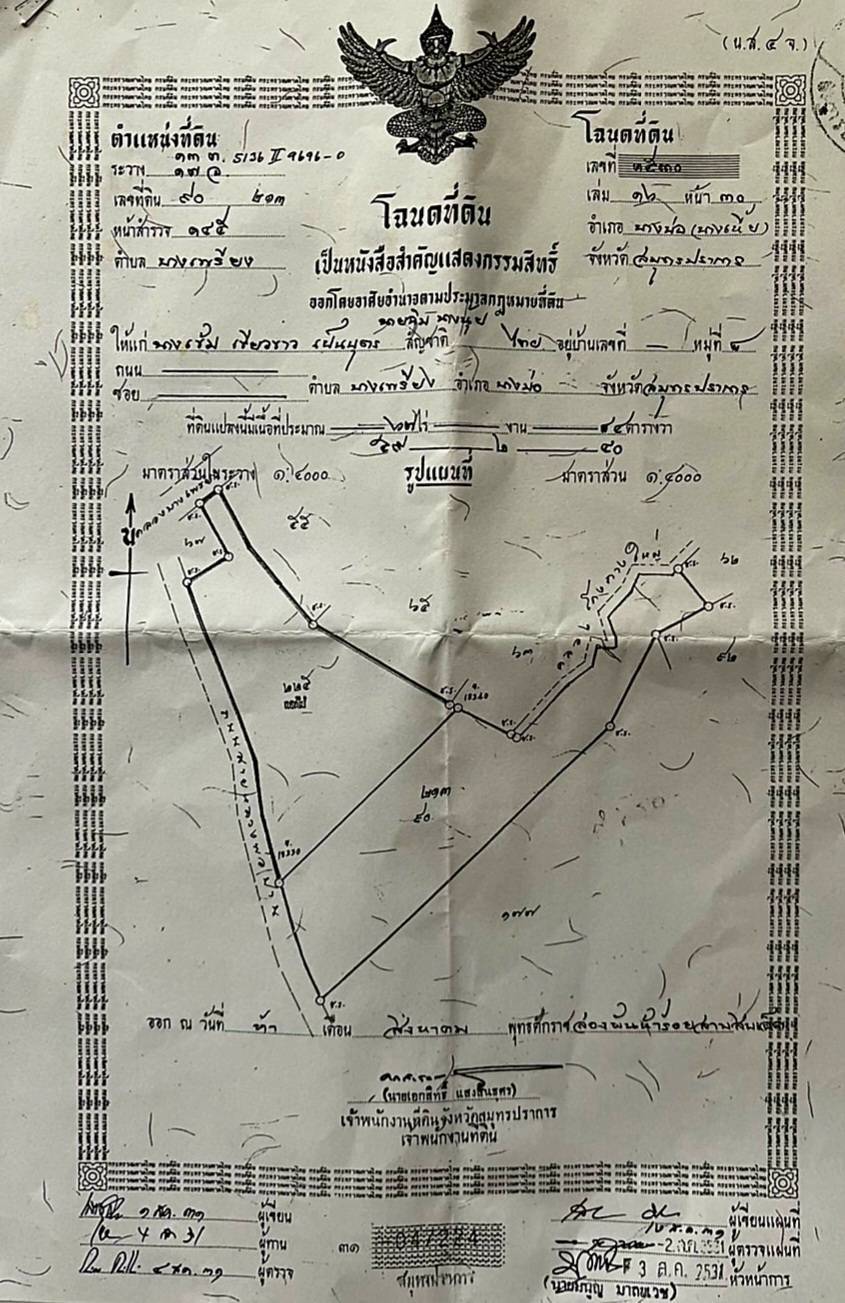 (น.ส.๔ จ.)
ตำแหน่งที่ดิน
ระวาง ๑๓ ท. 5136 II 9696-0
๑๗ อ
เลขที่ดิน ๙๐ ๒๑๓
หน้าสำรวจ ๑๔๕
ตำบล บางเพรียง
โฉนดที่ดิน
เลขที่ ๑๕๓๐
เล่ม ๑๖ หน้า ๓๐
อำเภอ บางบ่อ (บางเหี้ย)
จังหวัด สมุทรปราการ
โฉนดที่ดิน
เป็นหนังสือสำคัญแสดงกรรมสิทธิ์
ออกโดยอาศัยอำนาจตามประมวลกฎหมายที่ดิน
ให้แก่ นางเข้ม เขียวขาว เป็นบุตร สัญชาติ ไทย อยู่บ้านเลขที่ — หมู่ที่ ๘
ถนน ตำบล บางเพรียง อำเภอ บางบ่อ จังหวัด สมุทรปราการ
ซอย
ที่ดินแปลงนี้มีเนื้อที่ประมาณ ๖๗ ไร่ — งาน ๘๔ ตารางวา
๕๙ ๒ ๘๐
มาตราส่วนในระวาง ๑:๔๐๐๐ รูปแผนที่ มาตราส่วน ๑:๔๐๐๐
น
๖๗
๕๕
๖๕
๖๓
๖๒
๙๒
๒๒๕
๒๑๓
๙๐
๑๗๗
ออก ณ วันที่ ห้า เดือน สิงหาคม พุทธศักราช สองพันห้าร้อยสามสิบเอ็ด
(นายเอกสิทธิ์ แสงสินธุศร)
เจ้าพนักงานที่ดินจังหวัดสมุทรปราการ
เจ้าพนักงานที่ดิน
๑ ส.ค. ๓๑ ผู้เขียน
4 ส.ค. 31 ผู้ทาน
๔ ส.ค. ๓๑ ผู้ตรวจ
๓๑ 047224
สมุทรปราการ
ผู้เขียนแผนที่
-2 ส.ค. 2531 ผู้ตรวจแผนที่
3 ส.ค. 2531 หัวหน้าการ